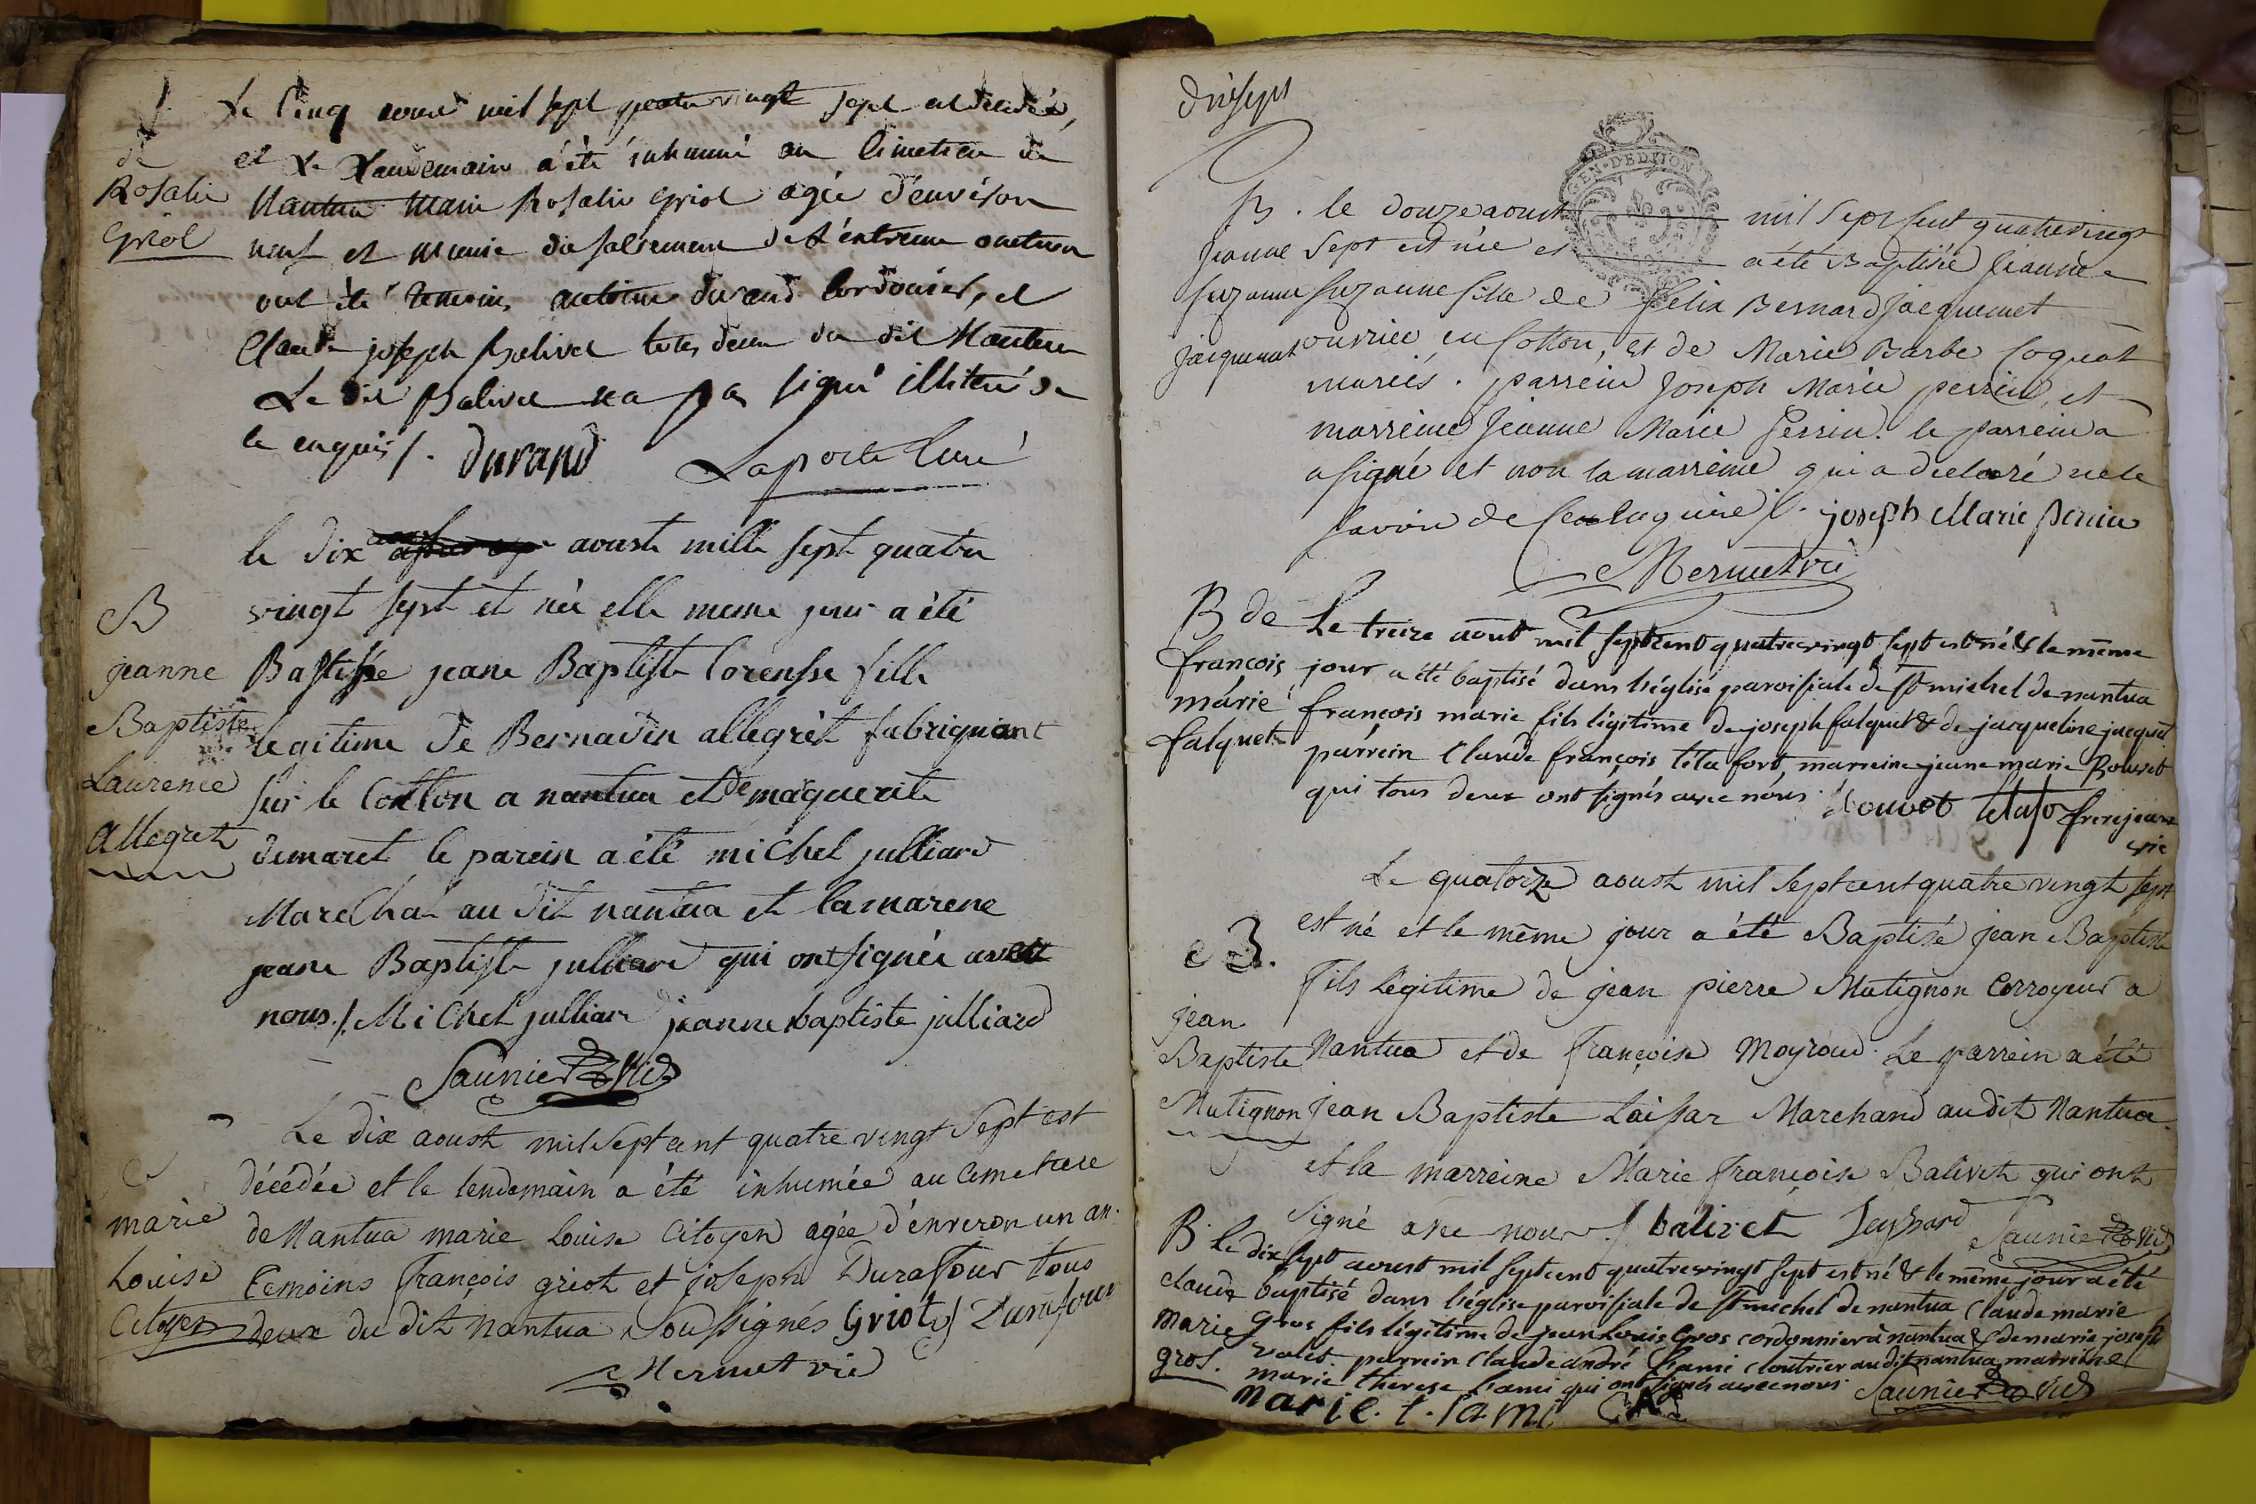 de
Rosalie
Griot
Le Cinq aoust mil sept quatre vingt sept est decedée,
et Le Landemain a été inhumé au Cimetiere de
Nantua Marie Rosalie Griot agée d'environ
neuf et munie du Sacrement de L'extreme onction
ont été temoins antoine durand Cordonier, et
Claude joseph Balivet tutes deux du dit Nantua
Le dit Balivet na pas signé illiteré de
ce enquis /. durand Laporte Curé
B
jeanne
Baptiste
Laurence
allegret
le dix aoust mille sept quatre
vingt sept et née elle meme jour a été
Baptisée jeane Baptiste Lorensse fille
legitime de Bernadin allegrèt fabriquant
sur le Cotton a nantua et de marguerite
demaret le parein a été michel julliard
Marechal au dit nantua et la marene
jeane Baptiste julliard qui ont signée avec
nous ./. Michel julliard jeanne baptiste julliard
Saunier vic
marie
Louise
Citoyen
Le dix aoust mil sept cent quatre vingt sept est
décédée et le lendemain a été inhumée au Cimetiere
de Nantua marie Louise Citoyen agée d'environ un an.
temoins françois griot et joseph Durafour tous
deux du dit Nantua Soussignés Griot / Durafour
Mermet vic
dixsept
GEN. D. DIJON
B.
Jeanne
Suzanne
jacquemet
le douze aoust mil sept cent quatrevingt
Sept est née et a été Baptisée Jeanne
Suzanne fille de Felix Bernard Jacquemet
ouvrier en Cotton, et de Marie Barbe Coquat
mariés. parrein Joseph Marie perrin, et
marreine Jeanne Marie Perrin. le parrein a
a signé et non la marreine qui a declaré ne le
savoir de ce enquise /. joseph Marie perrin
Mermet vic
B de
françois
márie
falquet
Le treize aout mil septcent quatrevingt sept est né & le même
jour a été baptisé dans l'église paroissiale de St michel de nantua
françois marie fils légitime de joseph falquet & de jacqueline jacquet
parrein Claude françois tétafort, marreine jeane marie Bouvet
qui tous deux ont signés avec nous. Bouvet tetafo frerejean
vic
B.
jean
Baptiste
Mutignon
Le quatorze aoust mil sept cent quatre vingt sept
est né et le même jour a été Baptisé jean Baptiste
fils Légitime de jean pierre Mutignon Corroyeur a
Nantua et de françoise Moyroud. Le parrein a été
Jean Baptiste Laissar Marchand au dit Nantua
et la marreine Marie françoise Balivet qui ont
signé avec nous / balivet Layssard Saunier vic
B.
claude
marie
gros.
Le dix sept aoust mil septcent quatrevingt sept est né & le même jour a été
baptisé dans l'église paroissiale de St michel de nantua Claude marie
Gros fils légitime de jean Louis Gros cordonnier à nantua & de marie joseph
valet. parrein Claude andré Lami Cloutrier au dit nantua marreine
marie therese Lami qui ont signés avec nous. Saunier vic
marie. t. lami CAL